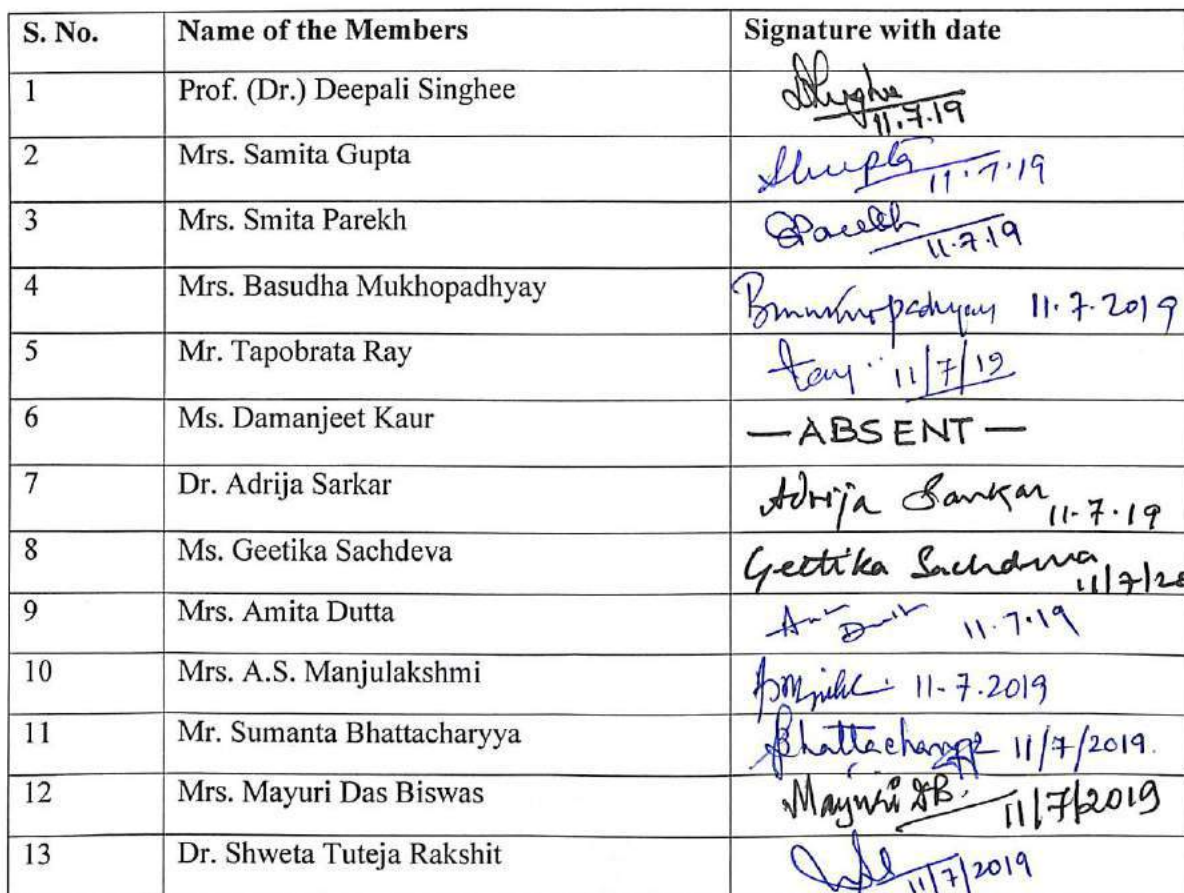 S. No. Name of the Members Signature with date
1 Prof. (Dr.) Deepali Singhee 11.7.19
2 Mrs. Samita Gupta 11.7.19
3 Mrs. Smita Parekh 11.7.19
4 Mrs. Basudha Mukhopadhyay 11.7.2019
5 Mr. Tapobrata Ray 11/7/19
6 Ms. Damanjeet Kaur — ABSENT —
7 Dr. Adrija Sarkar Adrija Sarkar 11.7.19
8 Ms. Geetika Sachdeva Geetika Sachdeva 11/7/20
9 Mrs. Amita Dutta 11.7.19
10 Mrs. A.S. Manjulakshmi 11-7.2019
11 Mr. Sumanta Bhattacharyya 11/7/2019.
12 Mrs. Mayuri Das Biswas Mayuri DB. 11/7/2019
13 Dr. Shweta Tuteja Rakshit 11/7/2019